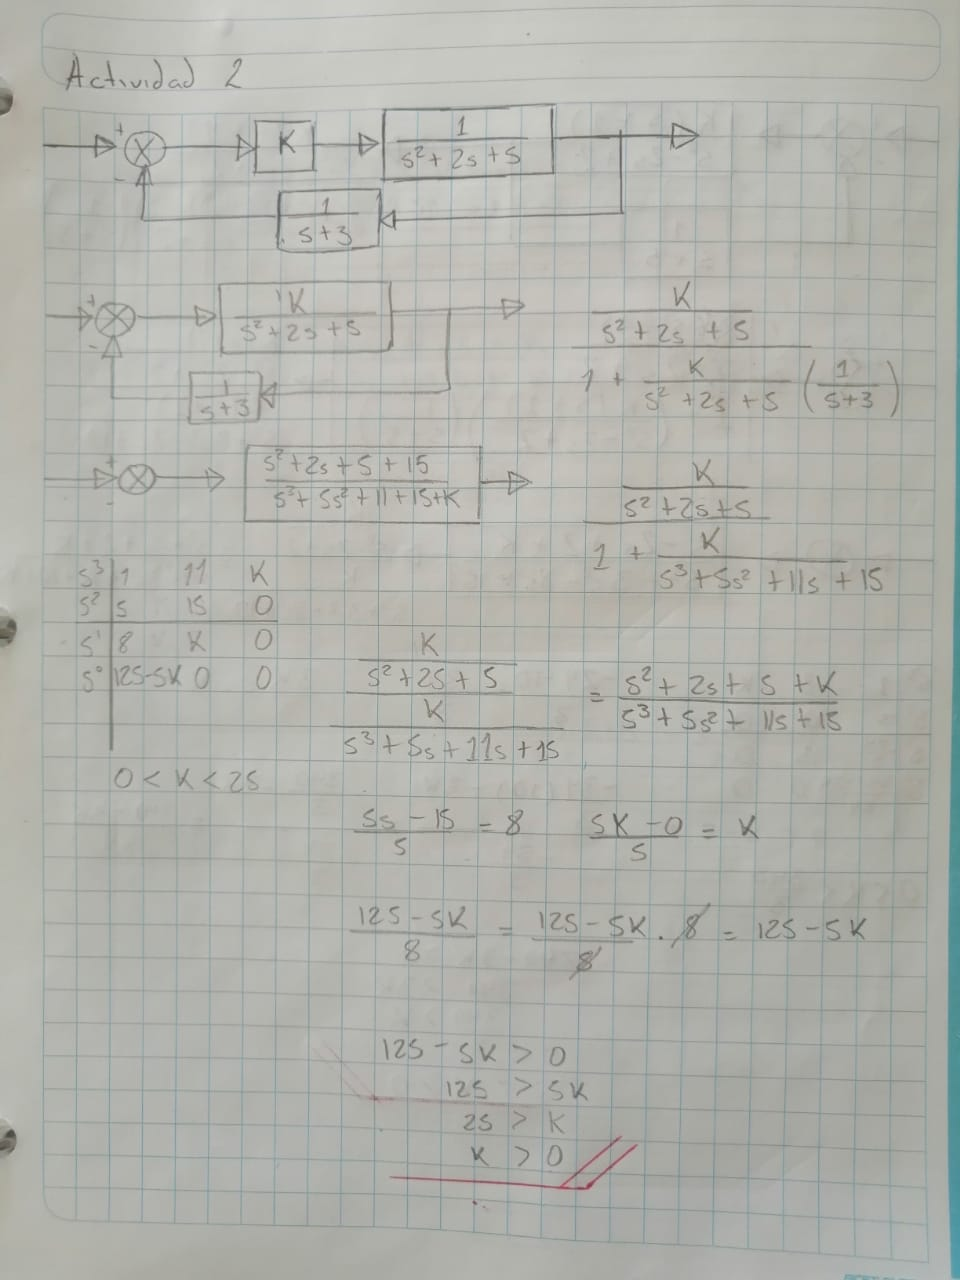 Actividad 2
+
-
K
1
s²+2s+5
1
s+3
+
-
K
s²+2s+5
1
s+3
K
s²+2s+5
1 + K
s²+2s+5 (1
s+3)
+
-
s²+2s+5+15
s³+5s²+11+15+K
K
s²+2s+5
1 + K
s³+5s²+11s+15
s³ 1 11 K
s² 5 15 0
s¹ 8 K 0
s⁰ 125-5K 0 0
0<K<25
K
s²+2s+5
K
s³+5s+11s+15
= s²+2s+5+K
s³+5s²+11s+15
55-15 = 8
5
5K-0 = K
5
125-5K = 125-5K . 8 = 125-5K
8 8
125-5K > 0
125 > 5K
25 > K
K > 0